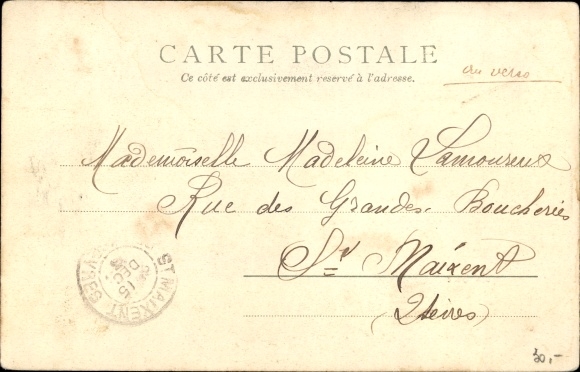 CARTE POSTALE
Ce côté est exclusivement reservé à l'adresse.
au verso
Mademoiselle Madeleine Lamoureux
Rue des Grandes Boucheries
St Maixent
(2 Sèvres)
ST MAIXENT
15
DEC
30,-